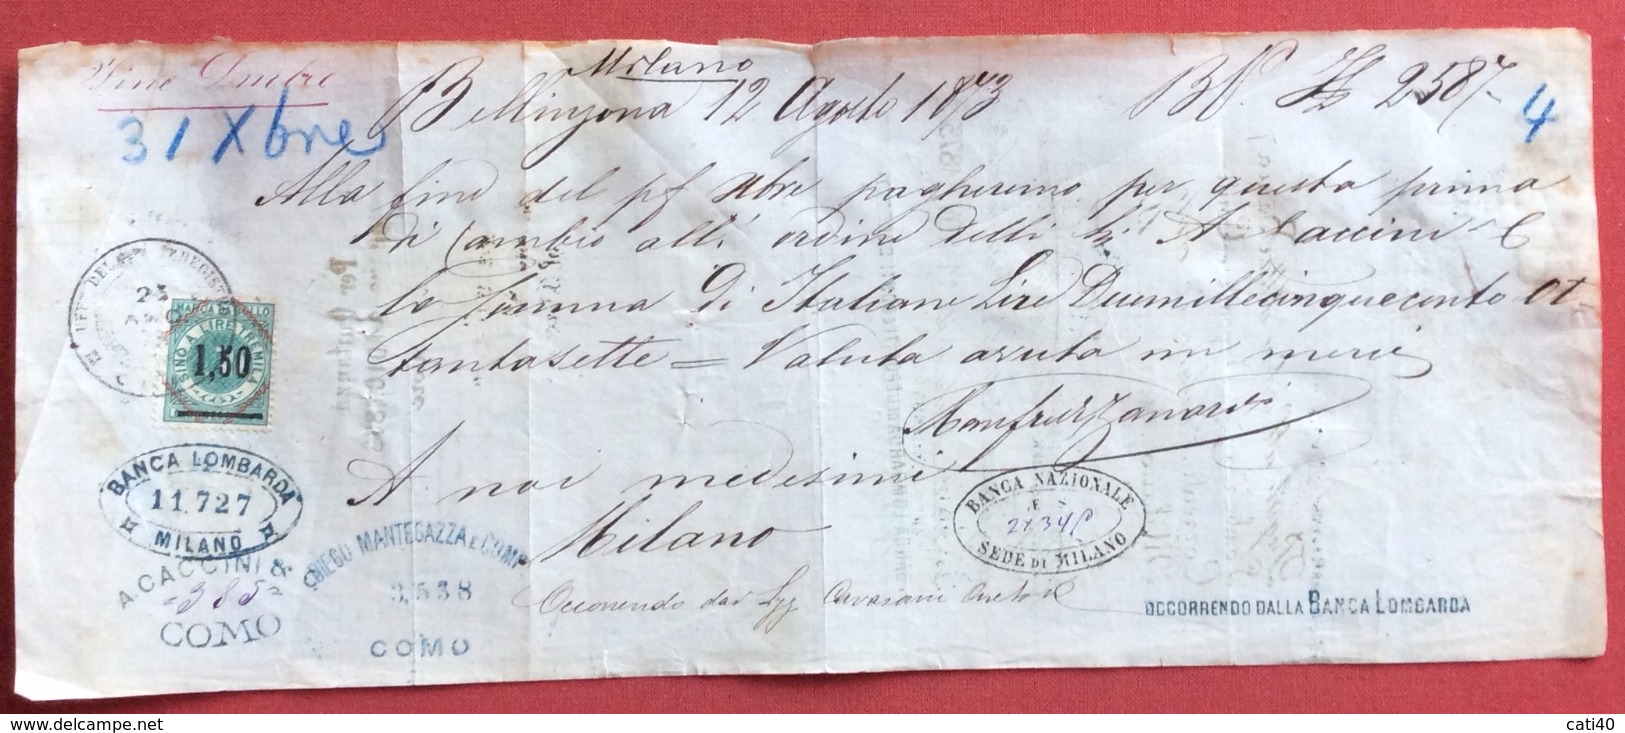 Fine Xmbre
31 Xbre
Milano
Bellinzona 12 Agosto 1873 BP. £ 2587-
4
Alla fine del pf Xbre pagheremo per questa prima
di Cambio all' ordine delli S. A Caccini & C
la somma di Italiane Lire Duemillecinquecento ot
tantasette = Valuta avuta in merci
A noi medesimi
Milano
Occorrendo dai
MARCA DA BOLLO
FINO A LIRE TREMILA
1,50
BANCA LOMBARDA
11.727
MILANO
A CACCINI &
-385-
COMO
DIEGO MANTEGAZZA E COMP
3,538
COMO
BANCA NAZIONALE
SEDE DI MILANO
OCCORRENDO DALLA BANCA LOMBARDA
www.delcampe.net
cati40